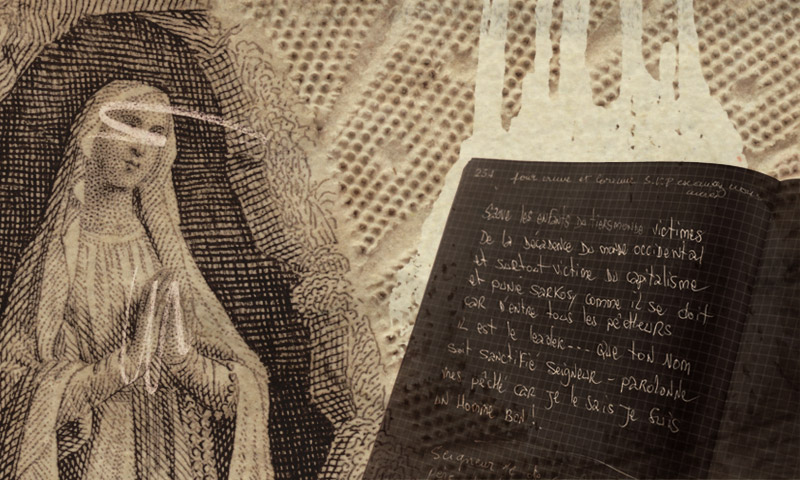 234 pour
Sauve les enfants du tiersmonde victimes
De la Décadence Du monde occidental
et surtout victime du capitalisme
et punie SARKOSy comme il se doit
CAR D'entre tous les pécheurs
il est le leader--- Que ton Nom
soit sanctifié seigneur - pardonne
mes péché car je le sais je suis
un Homme Bon!
Seigneur